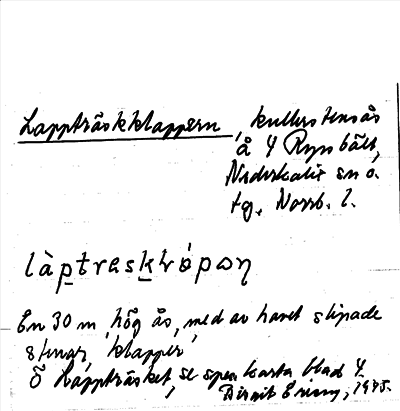 Lappträskklappern, kullerstensås
å 4 Rynbäck,
Nederkalix sn o.
tg, Norrb. l.
làptraskròpωη
En 30 m hög ås, med av havet slipade
stenar, klapper,
Ö Lappträsket, se spec karta blad 4.
Birgit Ering, 1935.